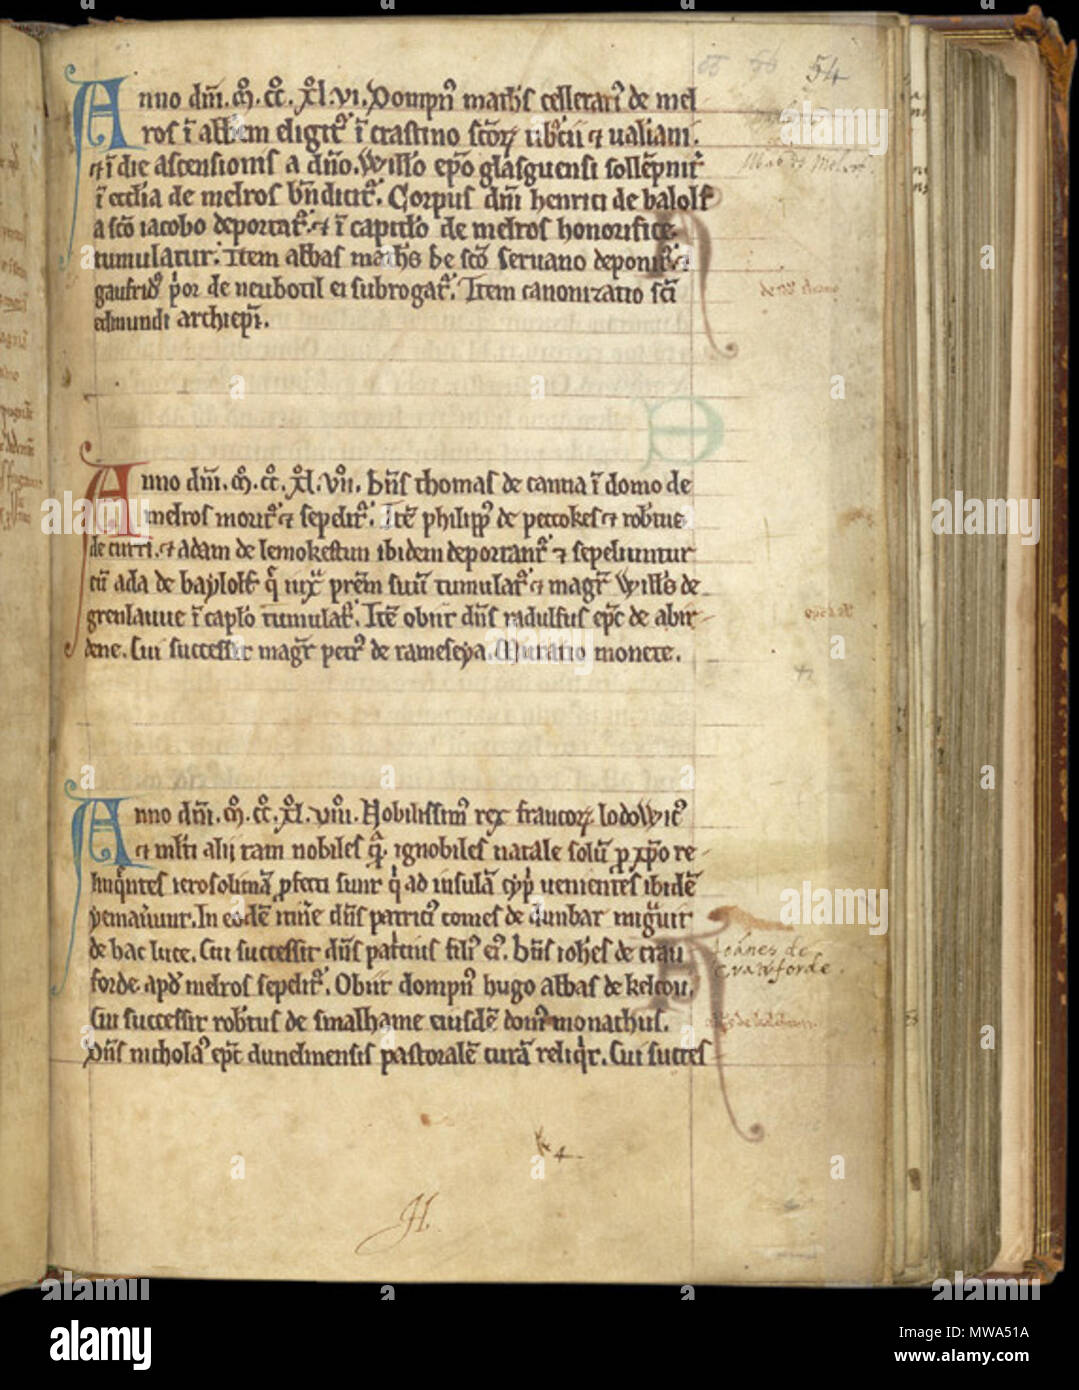 54
Anno dm̄. M̊. cc̊. xl̊. vi. Dompn̄ math's cellerari' de mel
ros ī abbem eligit' ī crastino scōꝝ tib'cii ⁊ ualiani.
⁊ ī die ascensionis a dño. Will'o ep̄o glasguensi sollēpnit'
ī eccl'ia de melros bn̄dicit'. Corpus dn̄i henrici de baloll'
a scō iacobo deportat'. ⁊ ī capitl'o de melros honorifice
tumulatur. Item abbas math's de scō seruano deponit' ⁊
gaufrid' p'or de neubotil ei subrogat'. Item canonizatio sc̄i
edmundi archiep̄i.
Anno dm̄. M̊. cc̊. xl̊. vii̊. dn̄s thomas de
melros morit' ⁊ sepelit'. Itē philipp' de pettokes ⁊ rob'tus
de curri. ⁊ adam de lemokestun ibidem deportant' ⁊ sepeliuntur
cū ada de bayloll' q' iux̄ prēm suū tumulat' ⁊ magr̄ Will's de
grenlauue ī capl'o tumulat'. Itē obiit dn̄s radulfus ep̄c de abir
dene. Cui successit magr̄ petr' de rameseya. Mutatio monete.
Anno dm̄. M̊. cc̊. xl̊. viii̊. Nobilissim' rex francoꝝ lodowic'
⁊ ml'ti alij tam nobiles q̄ ignobiles natale solū ꝓ xp̄o re
linq'ntes ierosolimā ꝓfecti sunt q' ad insulā cyp' uenientes ibidē
yemau'unt. In eodē itin'e dn̄s patrici' comes de dunbar mig'uit
de hac luce. Cui successit dn̄s patricius fili' ei'. dn̄s ioh'es de crau
forde. apd' melros sepelit'. Obiit dompn' hugo abbas de kelcou.
Cui successit rob'tus de smalhame eiusdē dom' monachus.
Dn̄s nichola' ep̄c dunelmensis pastoralē curā reliq't. Cui succes
Johanes de
Crawforde.
H.
alamy
Image ID: MWA51A
www.alamy.com